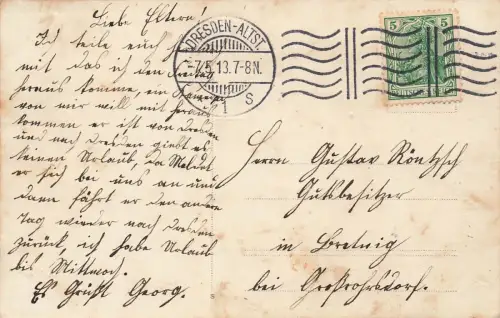 Liebe Eltern!
Ich teile euch
mit das ich den Freitag
heraus komme, ein Kamerad
von mir will mit heraus
kommen er ist von Dresden
und nach Dresden giebt es
keinen Urlaub, da Meldet
er sich bei uns an und
dann fährt er den andern
Tag wieder nach Dresden
zurück, ich habe Urlaub
bis Mittwoch.
Es Grüßt Georg.
DRESDEN-ALTST.
-7.5.13.7-8N.
1 s
5 5
Herrn Gustav Röntzsch
Gutsbesitzer
in Bretnig
bei Großröhrsdorf.